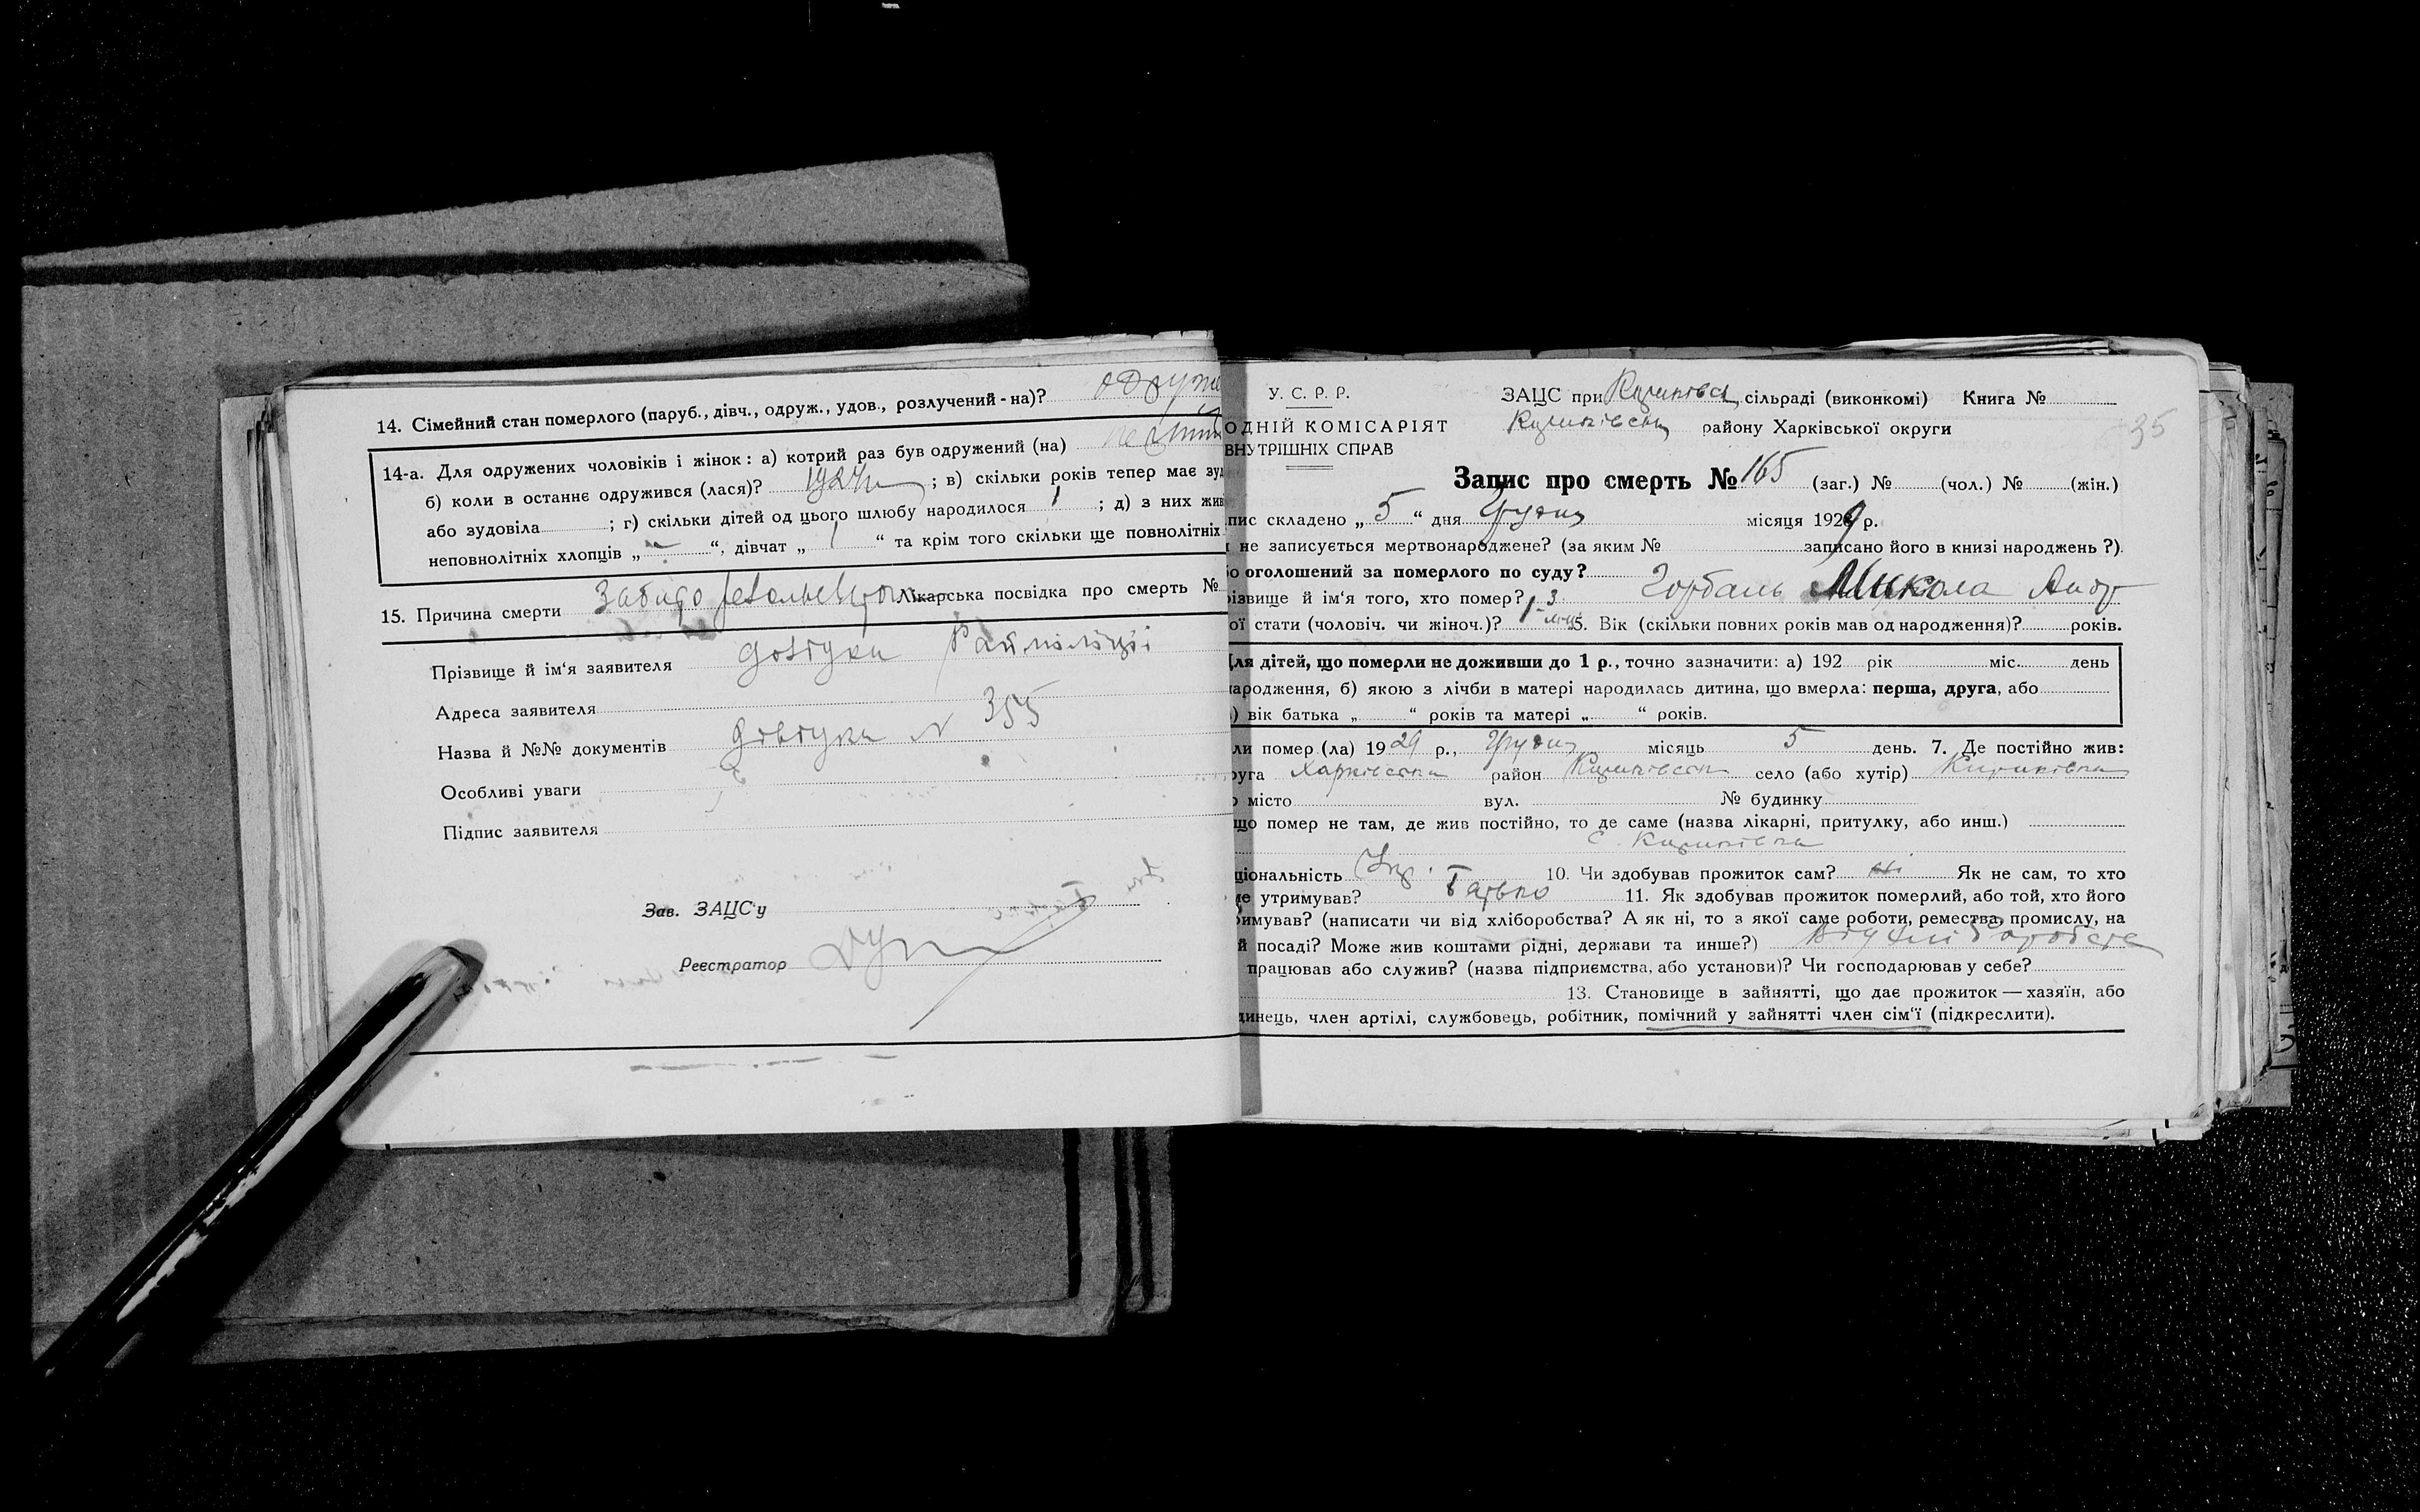 14. Сімейний стан померлого (паруб., дівч., одруж., удов., розлучений - на)? одруже
14-а. Для одружених чоловіків і жінок: а) котрий раз був одружений (на)
б) коли в останнє одружився (лася)? 1924 ; в) скільки років тепер має зу
або зудовіла ; г) скільки дітей од цього шлюбу народилося 1 ; д) з них жив
неповнолітніх хлопців „ — “, дівчат „ 1 “ та крім того скільки ще повнолітніх
15. Причина смерти Забито револьвером Лікарська посвідка про смерть №
Прізвище й ім‘я заявителя довідка Райміліції
Адреса заявителя
Назва й №№ документів довідка № 355
Особливі уваги
Підпис заявителя
Зав. ЗАЦС‘у
Реєстратор
У. С. Р. Р.
ОДНІЙ КОМІСАРІЯТ
ВНУТРІШНІХ СПРАВ
ЗАЦС при Кириківс сільраді (виконкомі) Книга №
Кириківськ району Харківської округи
35
Запис про смерть № 165 (заг.) № (чол.) № (жін.)
пис складено „ 5 “ дня Грудня місяця 1929 р.
не записується мертвонароджене? (за яким № записано його в книзі народжень ?).
о оголошений за померлого по суду?
різвище й ім‘я того, хто помер? Горбань Микола Андр
ої стати (чоловіч. чи жіноч.)? 3 5. Вік (скільки повних років мав од народження)? років.
Для дітей, що померли не доживши до 1 р., точно зазначити: а) 192 рік міс. день
народження, б) якою з лічби в матері народилась дитина, що вмерла: перша, друга, або
) вік батька „ “ років та матері „ “ років.
ли помер (ла) 1929 р., Грудня місяць 5 день. 7. Де постійно жив:
руга Харківська район Кириківськ село (або хутір) Кириківка
о місто вул. № будинку
що помер не там, де жив постійно, то де саме (назва лікарні, притулку, або инш.)
с. Кириківка
ціональність Укр. 10. Чи здобував прожиток сам? ні Як не сам, то хто
е утримував? Батько 11. Як здобував прожиток померлий, або той, хто його
римував? (написати чи від хліборобства? А як ні, то з якої саме роботи, ремества, промислу, на
й посаді? Може жив коштами рідні, держави та инше?)
працював або служив? (назва підприємства, або установи)? Чи господарював у себе?
13. Становище в зайнятті, що дає прожиток — хазяїн, або
динець, член артілі, службовець, робітник, помічний у зайнятті член сім‘ї (підкреслити).